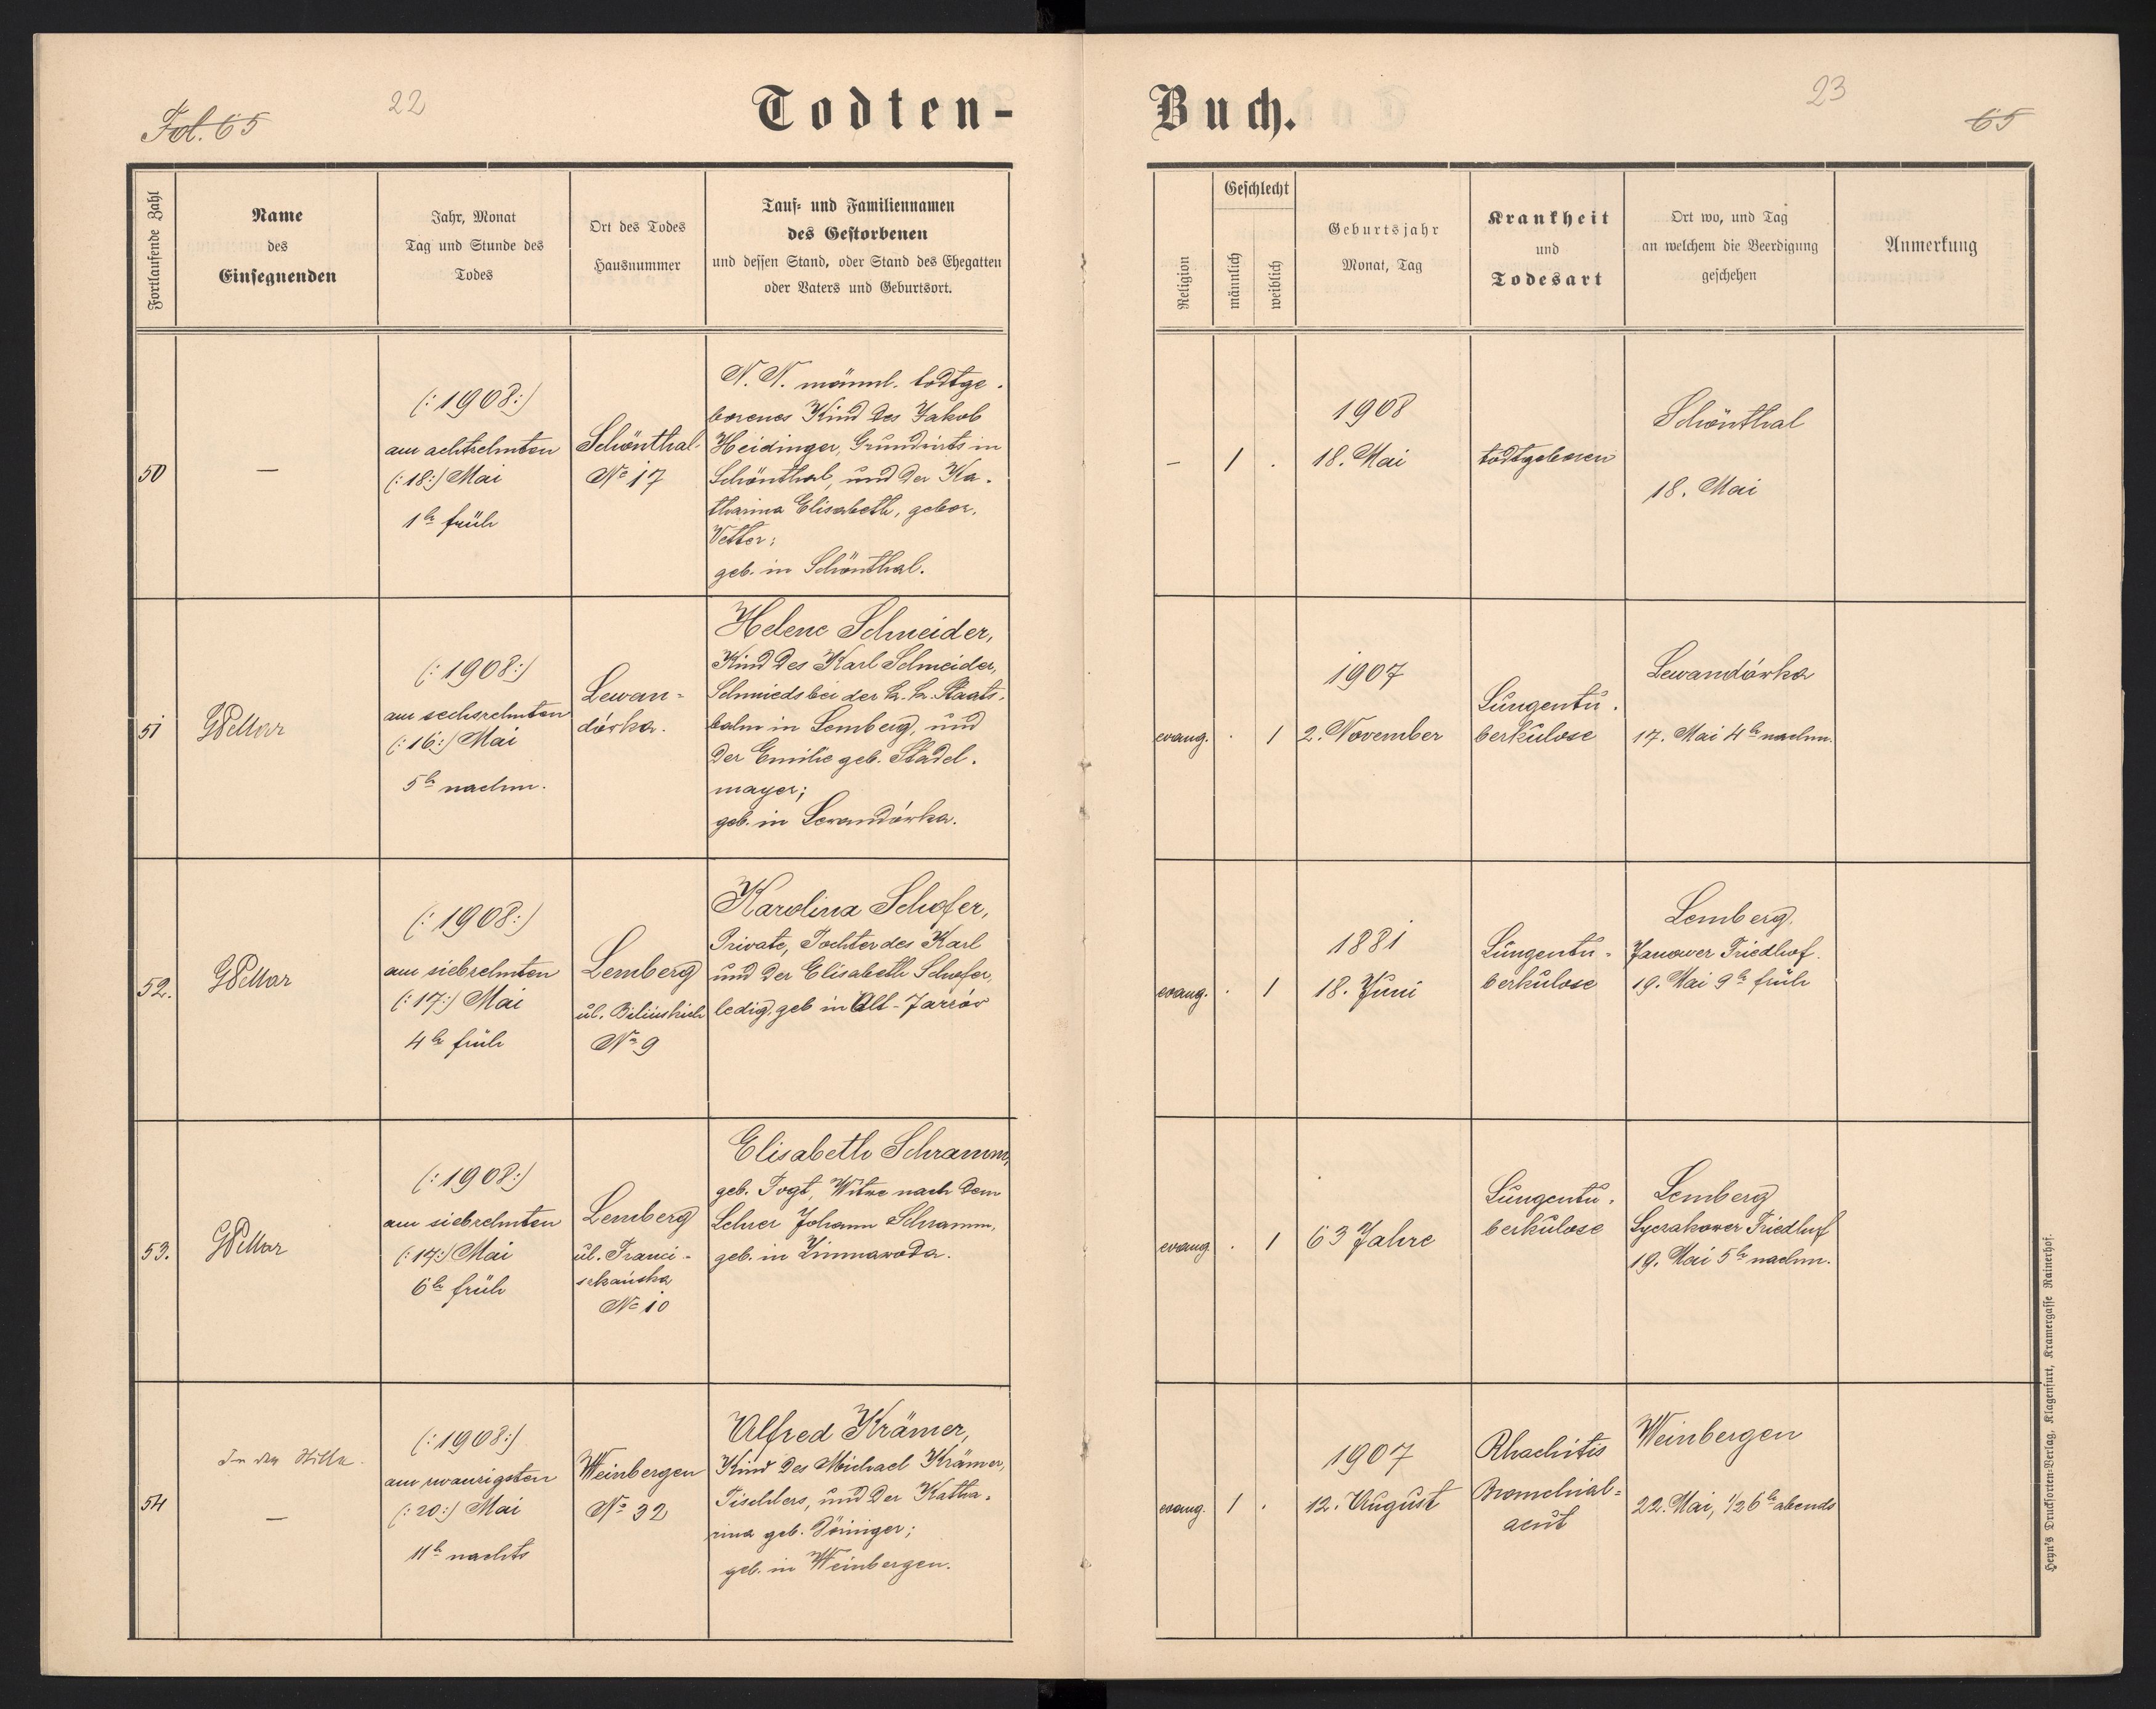 Fol. 65
22
Todten-
Buch.
23
65
Fortlaufende Zahl
Name
des
Einsegnenden
Jahr, Monat
Tag und Stunde des
Todes
Ort des Todes
Hausnummer
Tauf- und Familiennamen
des Gestorbenen
und dessen Stand, oder Stand des Ehegatten
oder Vaters und Geburtsort.
Religion
Geschlecht
männlich
weiblich
Geburtsjahr
Monat, Tag
Krankheit
und
Todesart
Ort wo, und Tag
an welchem die Beerdigung
geschehen
Anmerkung
50
—
(: 1908 :)
am achtzehnten
(: 18 :) Mai
1h früh
Schönthal
No 17
N. N. männl. todtge-
borenes Kind des Jakob
Heidinger, Grundwirts in
Schönthal, und der Ka-
tharina Elisabeth, gebor.
Vetter;
geb. in Schönthal.
–
1
.
1908
18. Mai
todtgeboren
Schönthal
18. Mai
51
(: 1908 :)
am sechszehnten
(: 16 :) Mai
5h nachm.
Lewan-
dówka.
Helene Schneider,
Kind des Karl Schneider,
Schmieds bei der k. k. Staats-
bahn in Lemberg, und
der Emilie geb. Städel-
mayer;
geb. in Lewandówka.
evang.
.
1
1907
2. November
Lungentu-
berkulose
Lewandówka
17. Mai 4h nachm.
52.
(: 1908 :)
am siebzehnten
(: 17 :) Mai
4h früh
Lemberg
ul. Bilińskich
No 9
Karolina Schofer,
Private, Tochter des Karl
und der Elisabeth Schofer,
ledig, geb in Alt-Jazów
evang.
.
1
1881
18. Juni
Lungentu-
berkulose
Lemberg.
Janower Friedhof.
19. Mai 9h früh
53.
(: 1908 :)
am siebzehnten
(: 17 :) Mai
6h früh
Lemberg
ul. Franci-
szkańska
No 10
Elisabeth Schramm,
geb. Vogt, Witwe nach dem
Lehrer Johann Schramm,
geb. in Zimnawoda.
evang.
.
1
63 Jahre
Lungentu-
berkulose
Lemberg
Lyczakower Friedhof
19. Mai 5h nachm.
54
In der Stille.
—
(: 1908 :)
am zwanzigsten
(: 20 :) Mai
11h nachts
Weinbergen
No 32
Alfred Krämer,
Kind des Michael Krämer,
Tischlers, und der Katha-
rina geb.
geb. in Weinbergen.
evang.
1
.
1907
12. August
Rhachitis
Bronchial-
acut
Weinbergen
22. Mai, 1/2 6h abends
Heyn's Drucksorten-Verlag, Klagenfurt, Kramergasse Rainerhof.